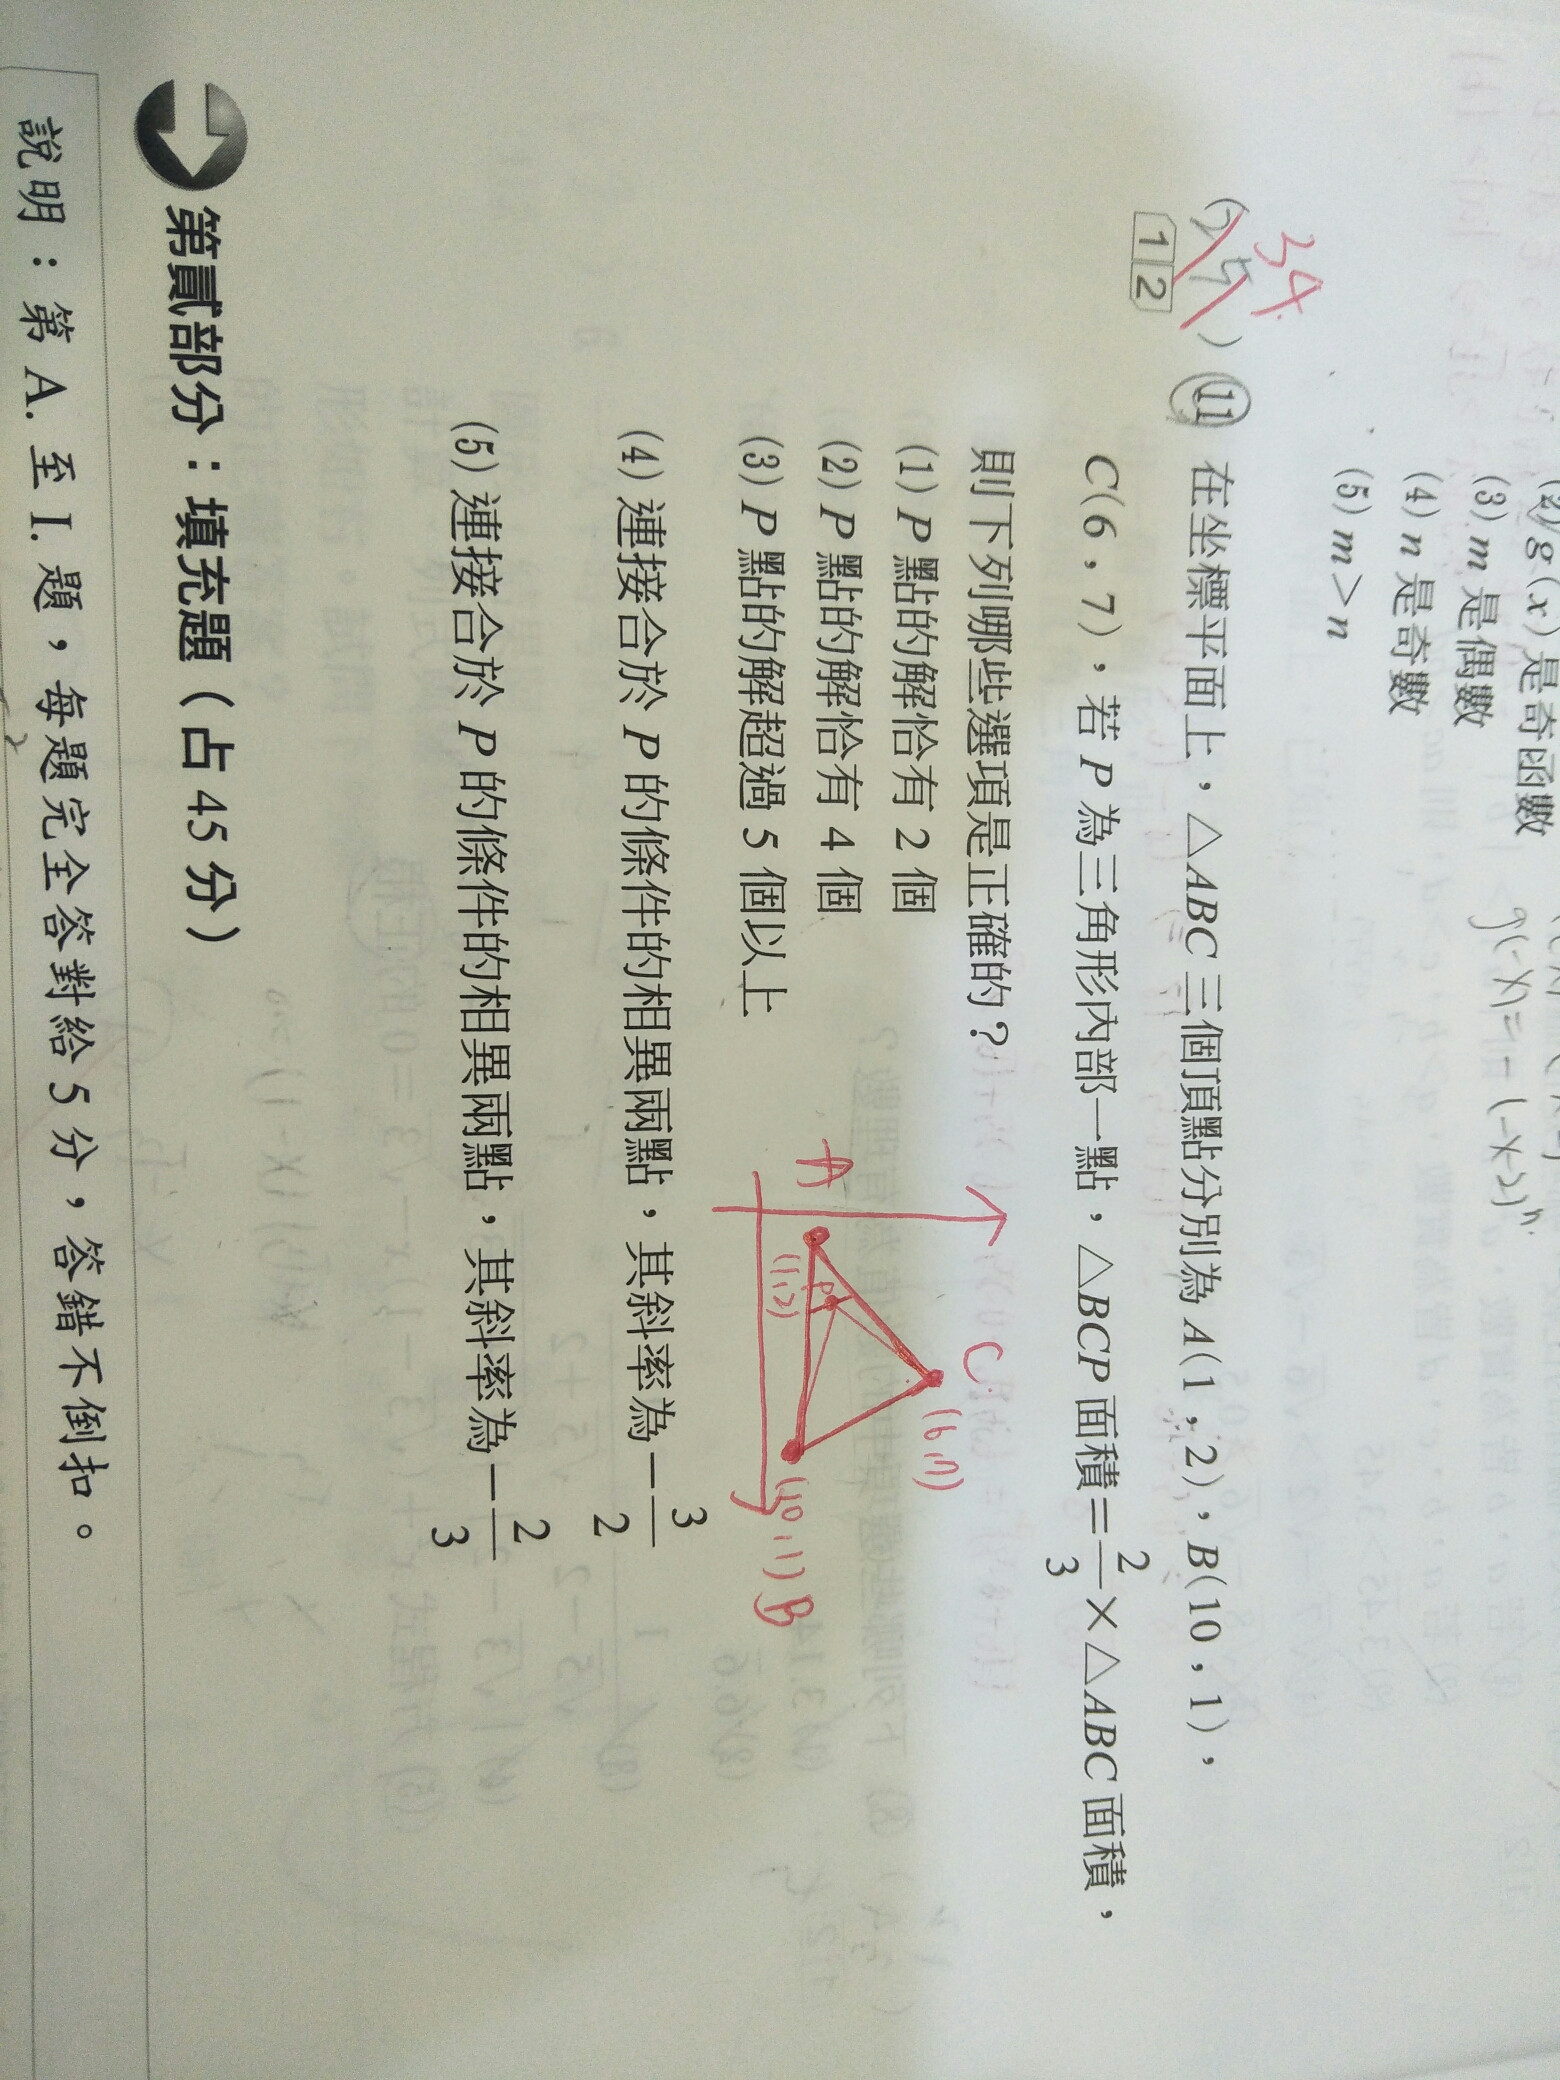 (2) g(x) 是奇函數
(3) m 是偶數
(4) n 是奇數
(5) m > n
g(-x) = - (-x-2)ⁿ
34
(25) 11 在坐標平面上，△ABC 三個頂點分別為 A(1，2)，B(10，1)，
12
C(6，7)，若 P 為三角形內部一點，△BCP 面積=2/3×△ABC 面積，
則下列哪些選項是正確的？
(1) P 點的解恰有 2 個
(2) P 點的解恰有 4 個
(3) P 點的解超過 5 個以上
(4) 連接合於 P 的條件的相異兩點，其斜率為－3/2
(5) 連接合於 P 的條件的相異兩點，其斜率為－2/3
C (6,7)
A (1,2) P
(10,1) B
第貳部分：填充題（占 45 分）
說明：第 A. 至 I. 題，每題完全答對給 5 分，答錯不倒扣。